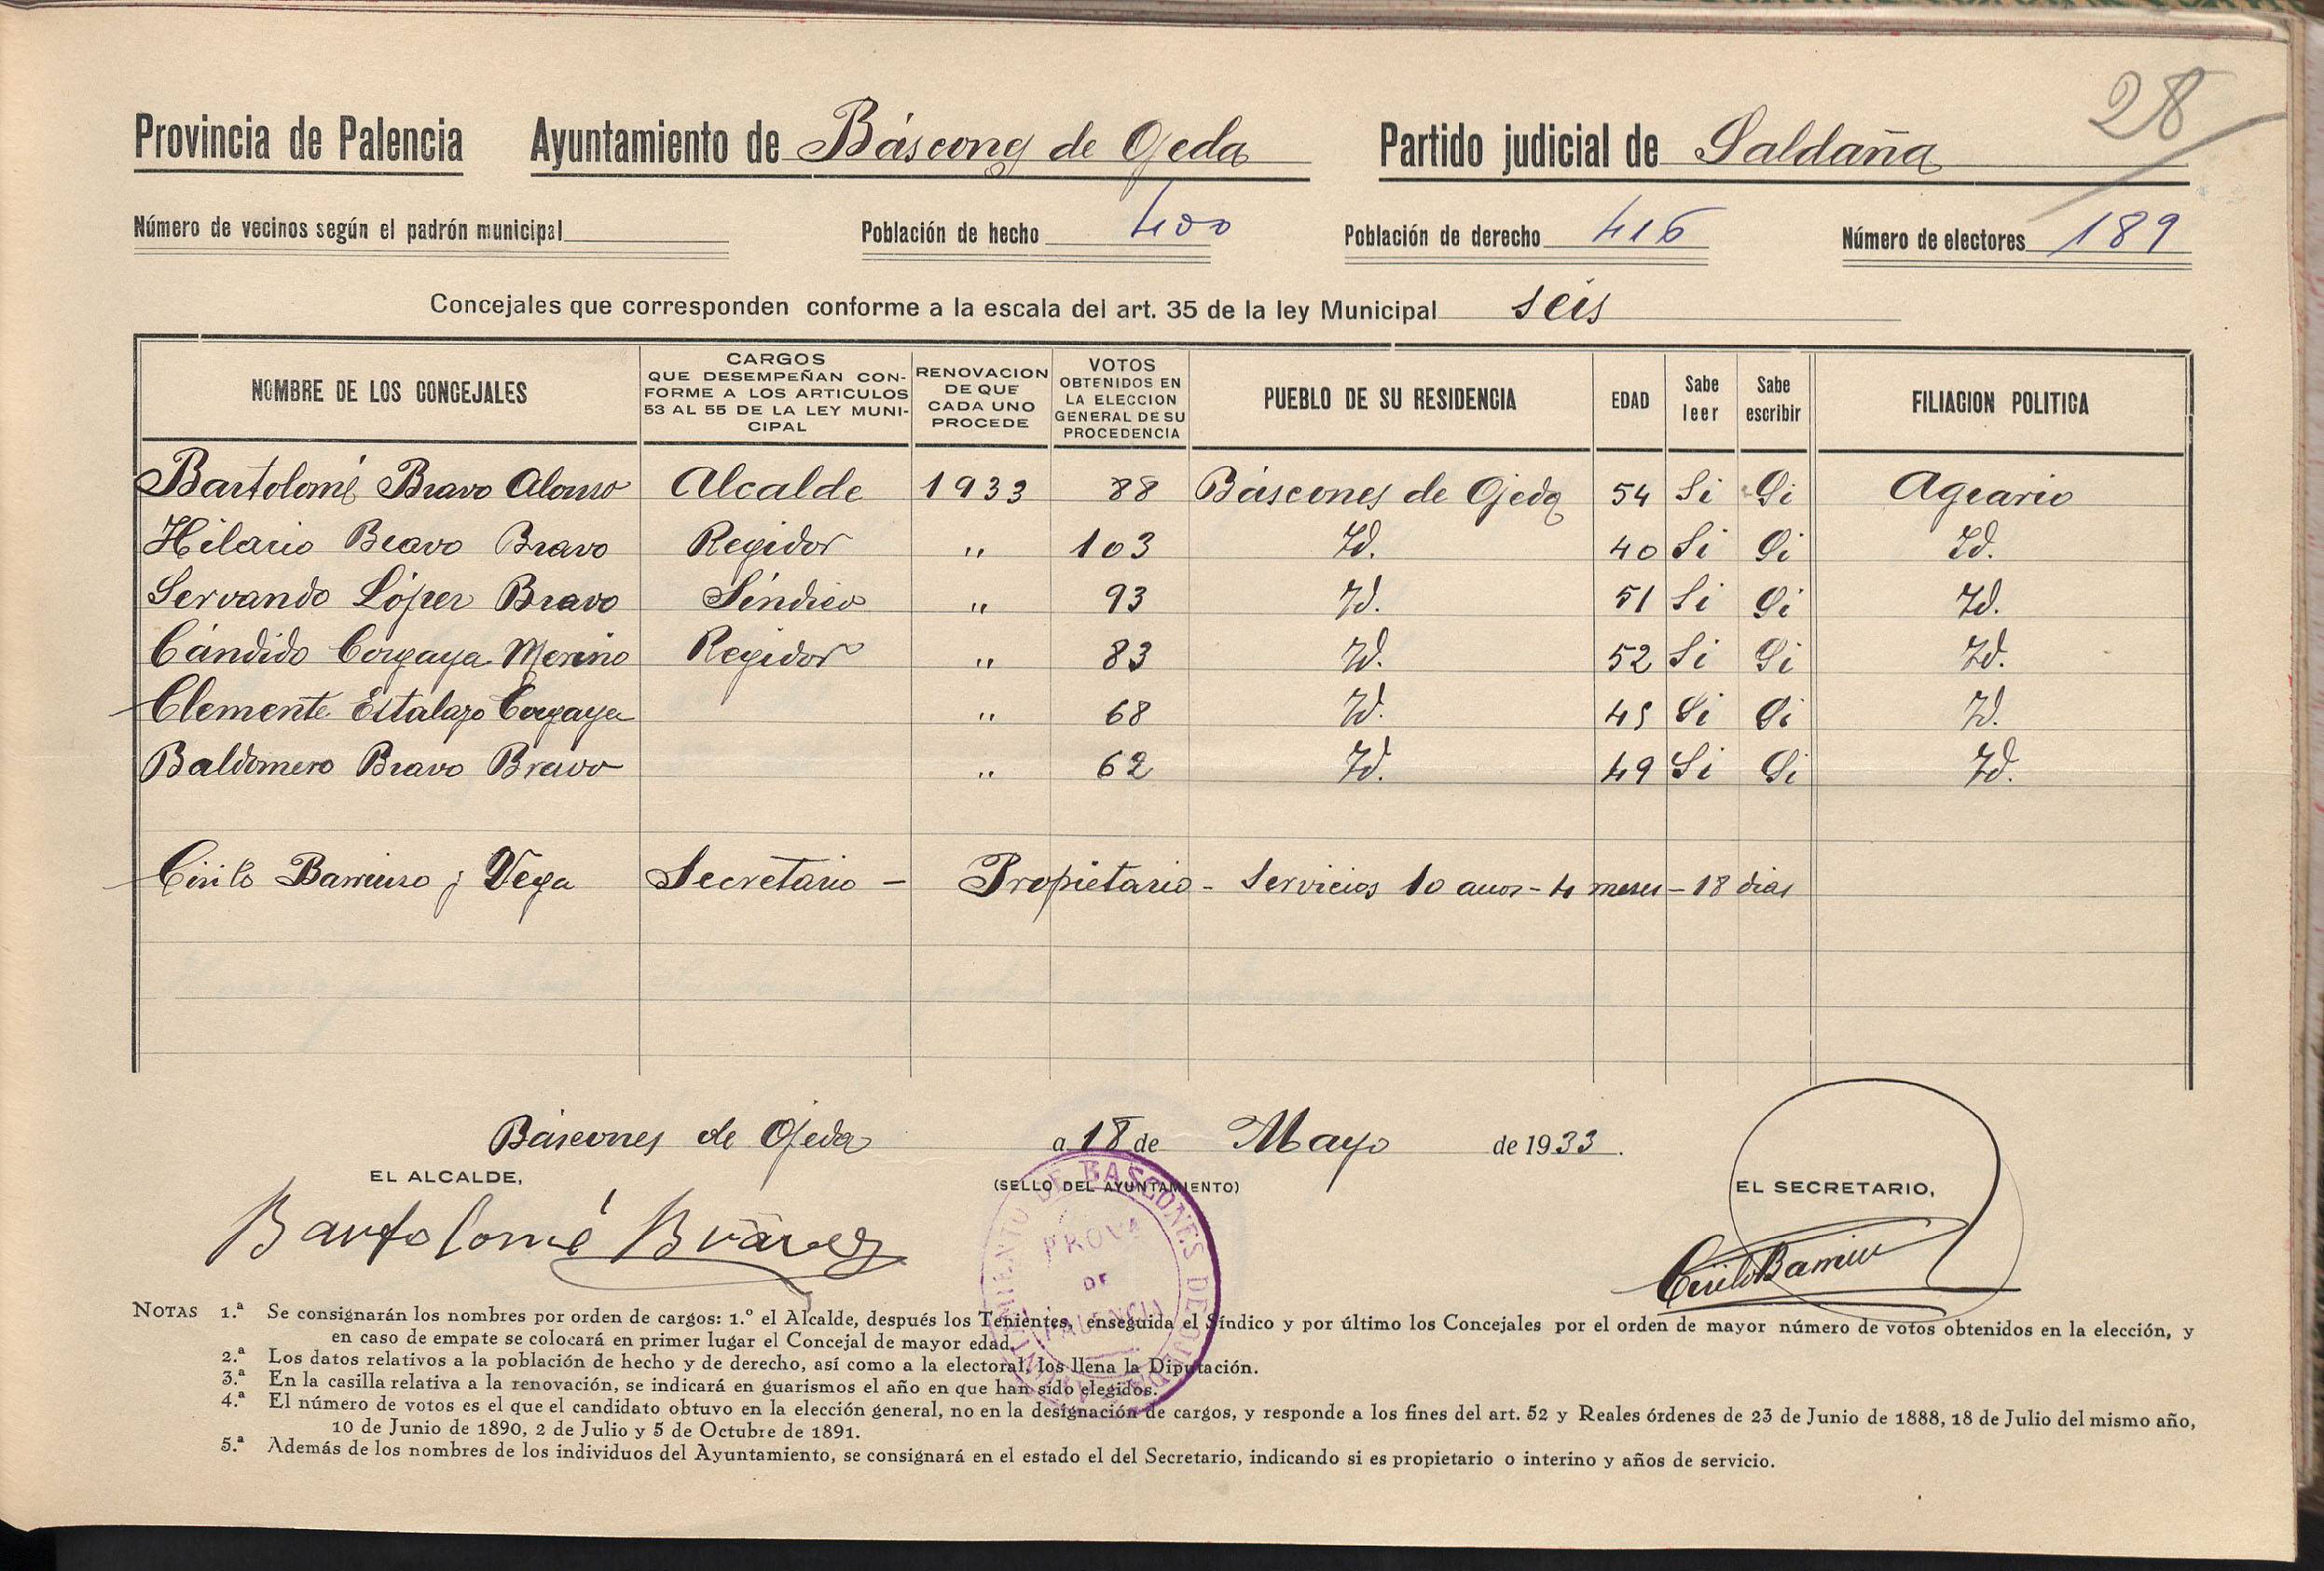 28
Provincia de Palencia Ayuntamiento de Báscones de Ojeda Partido judicial de Saldaña
Número de vecinos según el padrón municipal Población de hecho 400 Población de derecho 416 Número de electores 189
Concejales que corresponden conforme a la escala del art. 35 de la ley Municipal seis
NOMBRE DE LOS CONCEJALES CARGOS QUE DESEMPEÑAN CONFORME A LOS ARTICULOS 53 AL 55 DE LA LEY MUNICIPAL RENOVACION DE QUE CADA UNO PROCEDE VOTOS OBTENIDOS EN LA ELECCION GENERAL DE SU PROCEDENCIA PUEBLO DE SU RESIDENCIA EDAD Sabe leer Sabe escribir FILIACION POLITICA
Bartolomé Bravo Alonso Alcalde 1933 88 Báscones de Ojeda 54 Si Si Agrario
Hilario Bravo Bravo Regidor " 103 Id. 40 Si Si Id.
Servando López Bravo Síndico " 93 Id. 51 Si Si Id.
Cándido Corgaya Merino Regidor " 83 Id. 52 Si Si Id.
Clemente Estalayo Corgaya " 68 Id. Si Si Id.
Baldomero Bravo Bravo " 62 Id. 49 Si Si Id.
Cirilo Barriuso y Vega Secretario - Propietario - Servicios 10 años - 4 meses - 18 dias
Báscones de Ojeda a 18 de Mayo de 1933.
EL ALCALDE, (SELLO DEL AYUNTAMIENTO) EL SECRETARIO,
Bartolomé Bravo
Cirilo Barriuso
AYUNTAMIENTO DE BASCONES DE OJEDA
PROVA
DE
PALENCIA
NOTAS 1.ª Se consignarán los nombres por orden de cargos: 1.º el Alcalde, después los Tenientes, enseguida el Síndico y por último los Concejales por el orden de mayor número de votos obtenidos en la elección, y
en caso de empate se colocará en primer lugar el Concejal de mayor edad.
2.ª Los datos relativos a la población de hecho y de derecho, así como a la electoral, los llena la Diputación.
3.ª En la casilla relativa a la renovación, se indicará en guarismos el año en que han sido elegidos.
4.ª El número de votos es el que el candidato obtuvo en la elección general, no en la designación de cargos, y responde a los fines del art. 52 y Reales órdenes de 23 de Junio de 1888, 18 de Julio del mismo año,
10 de Junio de 1890, 2 de Julio y 5 de Octubre de 1891.
5.ª Además de los nombres de los individuos del Ayuntamiento, se consignará en el estado el del Secretario, indicando si es propietario o interino y años de servicio.